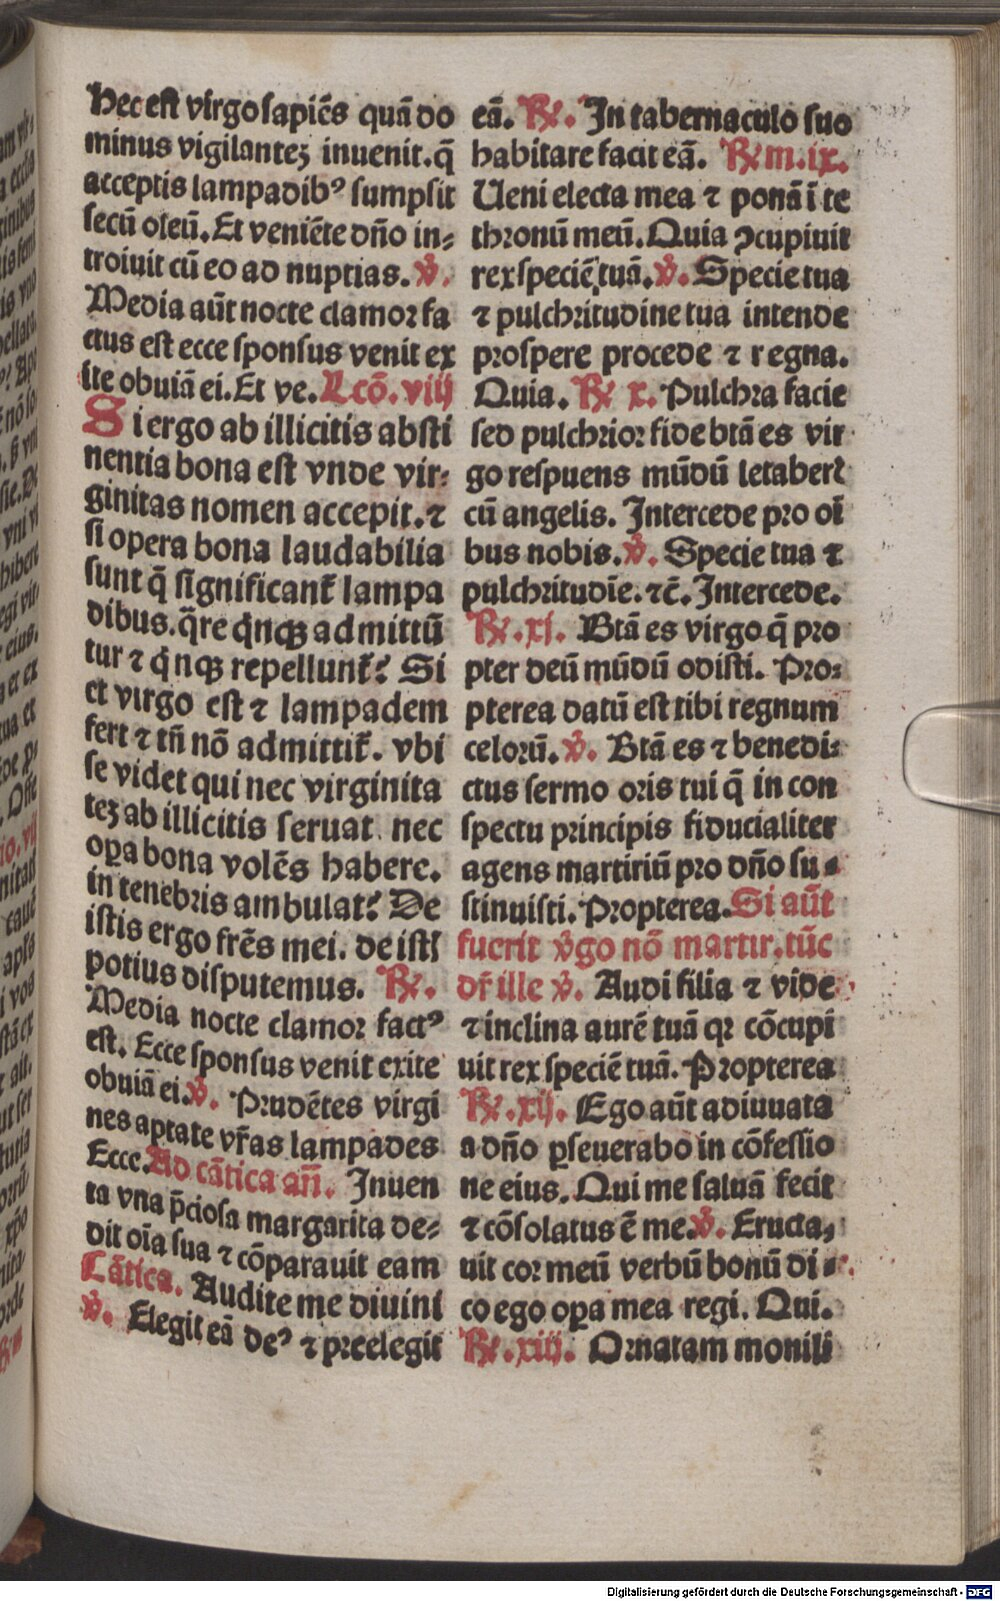 Hec est virgo sapiēs quā do
minus vigilanteʒ inuenit.q̄
acceptis lampadibꝰ sumpsit
secū oleū.Et veniēte dño in-
troiuit cū eo ad nuptias.℣.
Media aūt nocte clamor fa
ctus est ecce sponsus venit ex
ite obuiā ei.Et ve.Lcō.viij
Si ergo ab illicitis absti
nentia bona est vnde vir-
ginitas nomen accepit.⁊
si opera bona laudabilia
sunt q̄ significant᷑ lampa
dibus.q̄re q̇nqꝫ admittū
tur ⁊ q̇nqꝫ repellunt᷑? Si
et virgo est ⁊ lampadem
fert ⁊ tñ nō admittit᷑. vbi
se videt qui nec virginita
teʒ ab illicitis seruat. nec
oꝑa bona volēs habere.
in tenebris ambulat? De
istis ergo frēs mei. de istꝭ
potius disputemus. ℟.
Media nocte clamor factꝰ
est. Ecce sponsus venit exite
obuiā ei.℣. Prudētes virgi
nes aptate vr̄as lampades
Ecce.Ad cātica añ. Inuen
ta vna p̄ciosa margarita de-
dit oīa sua ⁊ cōparauit eam
Cātica. Audite me diuini
℣. Elegit eā deꝰ ⁊ preelegit
eā. ℟. In tabernaculo suo
habitare facit eā. ℟ m.ix.
Ueni electa mea ⁊ ponā ī te
thronū meū.Quia ꝯcupiuit
rex speciē tuā.℣. Specie tua
⁊ pulchritudine tua intende
prospere procede ⁊ regna.
Quia. ℟ x. Pulchra facie
sed pulchrior fide btā es vir
go respuens mūdū letaberꝭ
cū angelis. Intercede pro oī
bus nobis.℣. Specie tua ⁊
pulchritudīe. ⁊c̄. Intercede.
℟.xj. Btā es virgo q̄ pro
pter deū mūdū odisti. Pro-
pterea datū est tibi regnum
celorū.℣. Btā es ⁊ benedi-
ctus sermo oris tui q̄ in con
spectu principis fiducialiter
agens martiriū pro dño su-
stinuisti.Propterea.Si aūt
fuerit v̓go nō martir.tūc
dr̄ ille ℣. Audi filia ⁊ vide
⁊ inclina aurē tuā qꝛ cōcupi
uit rex speciē tuā. Propterea
℟.xij. Ego aūt adiuuata
a dño ꝑseuerabo in cōfessio
ne eius. Qui me saluā fecit
⁊ cōsolatus ē me.℣. Eructa-
uit cor meū verbū bonū di-
co ego oꝑa mea regi. Qui.
℟.xiij. Ornatam monili
Digitalisierung gefördert durch die Deutsche Forschungsgemeinschaft - DFG